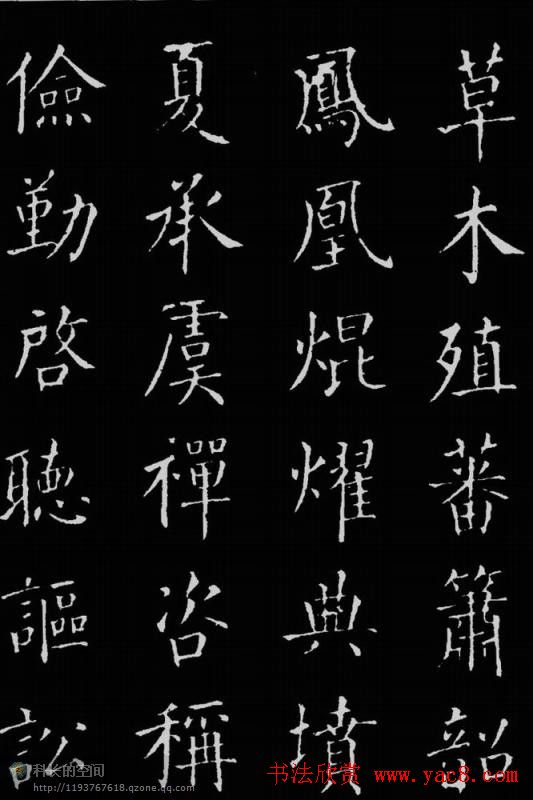 草木殖蕃簫韶
鳳凰焜耀典墳
夏承虞禪咨稱
儉勤啓聽謳訟
科长的空间
http://1193767618.qzone.qq.com
书法欣赏 www.yac8.com